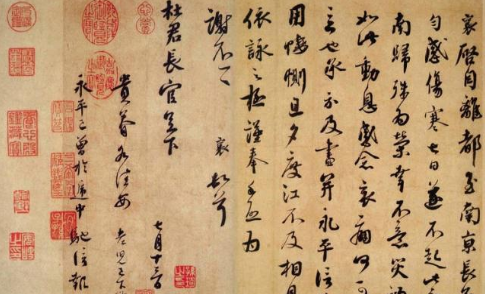 襄啓自離都至南京長
勻感傷寒七日遂不起此
南歸殊為榮幸不意災
如此動息感念哀痛何可
言也承示及書并永平信
用悽惻旦夕渡江不及相見
依詠之極謹奉手啓為
謝不一一 襄 頓首
杜君長官足下
七月十三日
貴眷各佳安 老兒已下
永平已曾於遞中馳信報